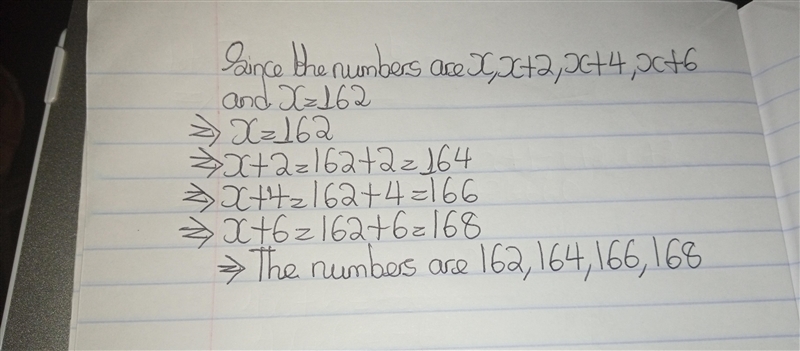 Since the numbers are x, x+2, x+4, x+6
and x=162
⇒ x=162
⇒ x+2=162+2=164
⇒ x+4=162+4=166
⇒ x+6=162+6=168
⇒ The numbers are 162, 164, 166, 168